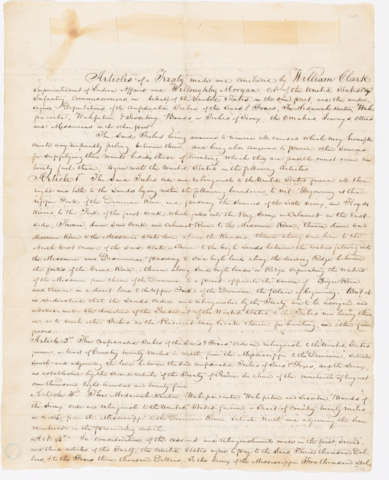 Articles of a Treaty made and concluded by William Clark
Superintendent of Indian Affairs and Willoughby Morgan Col. of the United States 1st
Infantry Commissioners on behalf of the United States on the one part and the under
signed Deputations of the Confederated Tribes of the Sacs & Foxes, the Medawah-Kanton, Wah
pacoota, Wahpeton & Sissetong Bands or Tribes of Sioux, the Omahas, Ioways & Ottoes
and Missourias on the other part
The said Tribes being anxious to remove all causes which may hereafter
create any unfriendly feeling between them, and being also anxious to provide other sources
for supplying their wants besides those of hunting, which they are sensible must soon en
tirely fail them; agree with the United States on the following Articles
Article 1. The said Tribes cede and relinquish to the United States forever all their
right and title to the lands lying within the following boundaries to wit: Beginning at the
upper Fork of the Demoine River and passing the sources of the Little Sioux and Floyds
Rivers to the Fork of the first creek which falls into the Big Sioux or Calumet on the East
side; thence, down said Creek and Calumet River to the Missouri River; thence down said
Missouri River to the Missouri State line above the Kansas; thence along said line to the
North West corner of the said State; thence to the high lands between the waters falling into
the Missouri and Desmoines, passing to said high lands along the dividing Ridge between
the forks of the Grand River; thence along said high lands or Ridge separating the waters
of the Missouri from those of the Demoine, to a point opposite the source of Boyer River
and thence in a direct line to the upper Fork of the Demoine, the place of beginning. But it
is understood that the lands ceded and relinquished by this Treaty are to be assigned and
allotted under the direction of the President of the United States to the Tribes now living there
on or to such other Tribes as the President may locate thereon for hunting, and other pur
poses
Article 2d The confederated Tribes of the Sacs & Foxes cede and relinquish to the United States
forever, a tract of Country twenty miles in width from the Mississippi to the Demoine; situate
South and adjoining the line between the said confederated Tribes of Sacs & Foxes and the Sioux
as established by the second article of the Treaty of Prairie du Chien of the nineteenth of August
one thousand eight hundred and twenty five
Article 3d The Medawah-Kanton, Wahpacoota, Wahpeton and Sissetong Bands of
the Sioux cede and relinquish to the United States forever a Tract of Country twenty miles
in width from the Mississippi to the Demoine River situate North and adjoining the line
mentioned in the preceding article
Art. 4th In consideration of the cessions and relinquishments made in the first second
and third articles of this Treaty, the United States agree to pay to the Sacs Three thousand Dol
lars, & to the Foxes three thousand Dollars; To the Sioux of the Mississippi Two thousand Dol